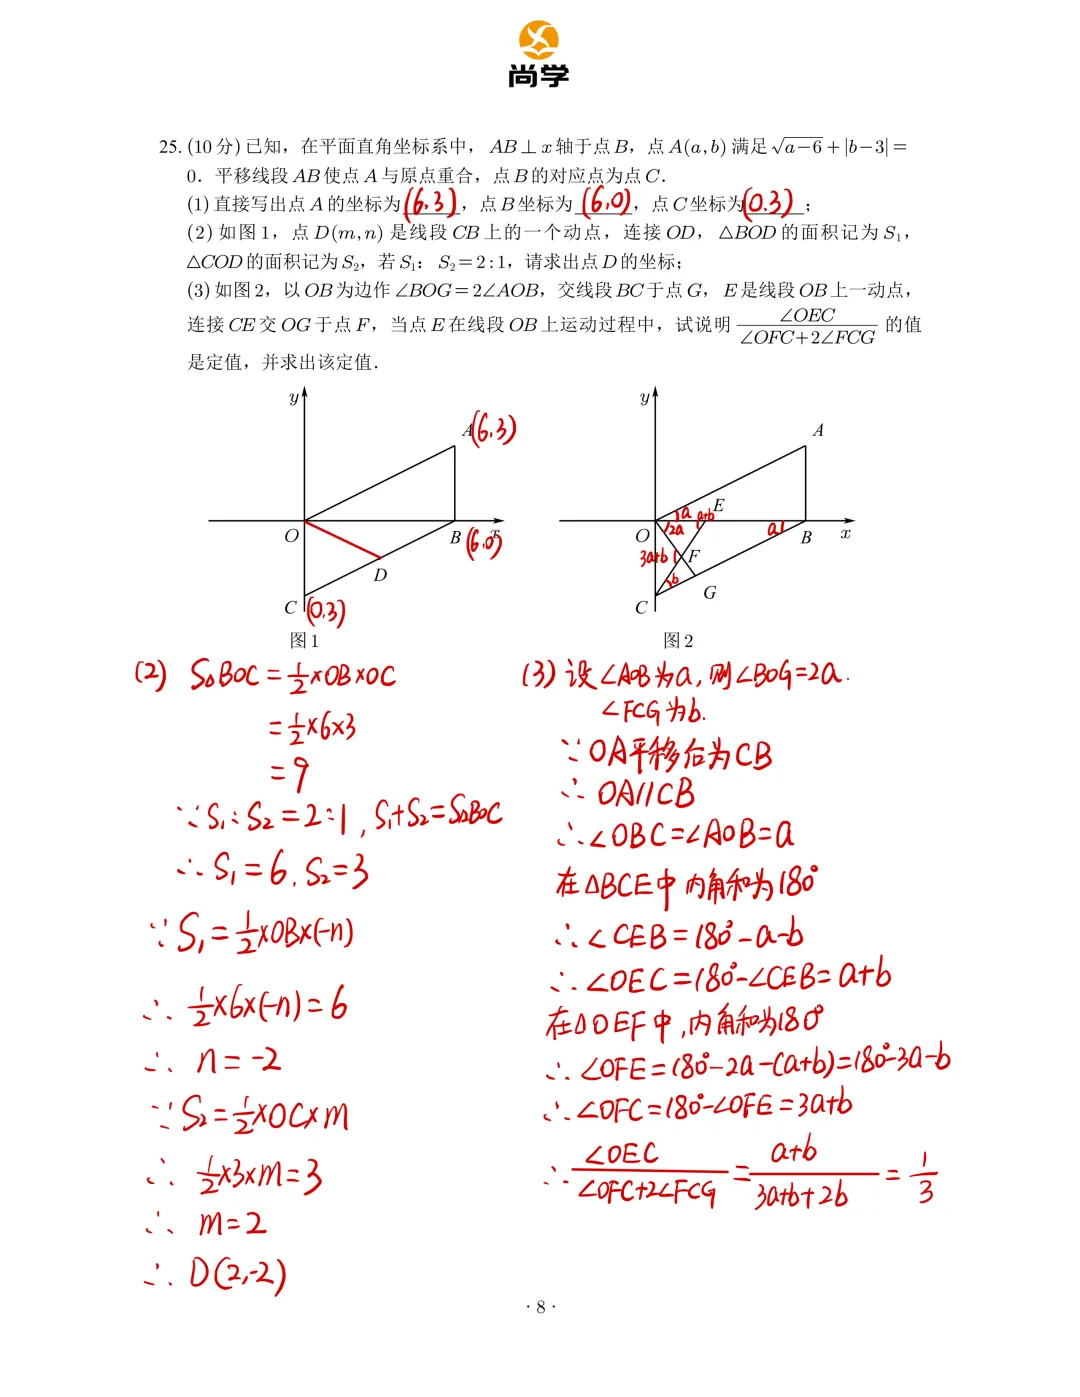 尚学
25. (10分) 已知，在平面直角坐标系中，AB⊥x轴于点B，点A(a,b)满足√a−6+|b−3|=
0．平移线段AB使点A与原点重合，点B的对应点为点C．
(1) 直接写出点A的坐标为(6.3)，点B坐标为(6,0)，点C坐标为(0.3)；
(2) 如图1，点D(m,n)是线段CB上的一个动点，连接OD，△BOD的面积记为S₁，
△COD的面积记为S₂，若S₁：S₂=2:1，请求出点D的坐标；
(3) 如图2，以OB为边作∠BOG=2∠AOB，交线段BC于点G，E是线段OB上一动点，
连接CE交OG于点F，当点E在线段OB上运动过程中，试说明 ∠OEC/∠OFC+2∠FCG 的值
是定值，并求出该定值．
y
A(6.3)
O
B(6.0)
x
D
C(0.3)
图1
y
A
a
E
a+b
O
2a
a
B
x
3a+b
F
b
G
C
图2
(2) S△BOC=1/2×OB×OC
=1/2×6×3
=9
∵S₁:S₂=2:1,S₁+S₂=S△BOC
∴S₁=6.S₂=3
∵S₁=1/2×OB×(-n)
∴ 1/2×6×(-n)=6
∴ n=-2
∵S₂=1/2×OC×m
∴ 1/2×3×m=3
∴ m=2
∴ D(2,-2)
(3) 设∠AOB为a,则∠BOG=2a.
∠FCG为b.
∵OA平移后为CB
∴ OA//CB
∴∠OBC=∠AOB=a
在△BCE中内角和为180°
∴∠CEB=180°-a-b
∴∠OEC=180°-∠CEB=a+b
在△OEF中,内角和为180°
∴∠OFE=180°-2a-(a+b)=180°-3a-b
∴∠OFC=180°-∠OFE=3a+b
∴ ∠OEC/∠OFC+2∠FCG = a+b/3a+b+2b = 1/3
· 8 ·